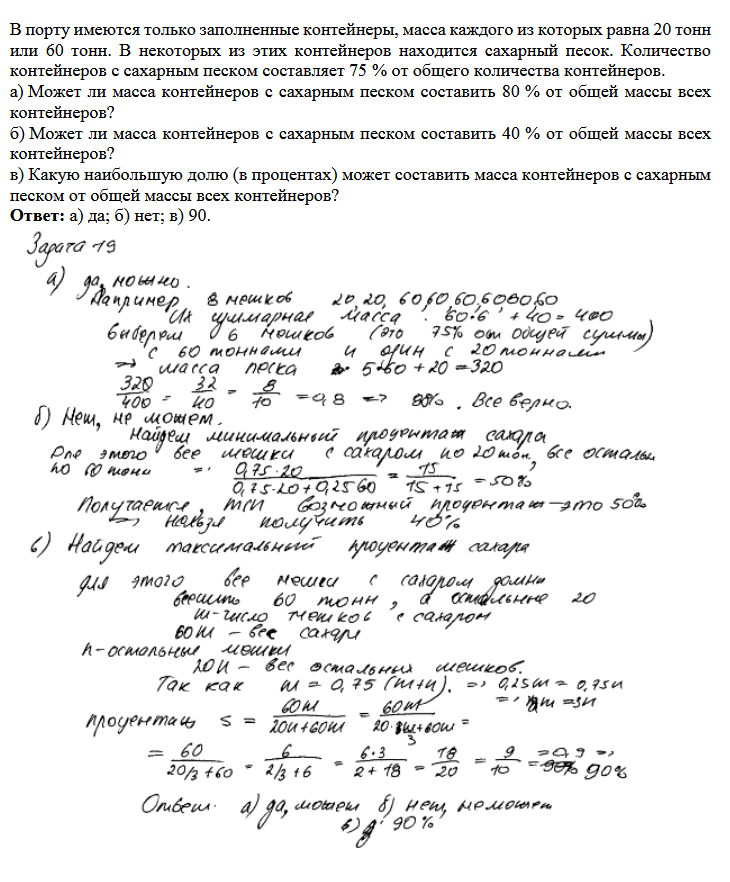 В порту имеются только заполненные контейнеры, масса каждого из которых равна 20 тонн
или 60 тонн. В некоторых из этих контейнеров находится сахарный песок. Количество
контейнеров с сахарным песком составляет 75 % от общего количества контейнеров.
а) Может ли масса контейнеров с сахарным песком составить 80 % от общей массы всех
контейнеров?
б) Может ли масса контейнеров с сахарным песком составить 40 % от общей массы всех
контейнеров?
в) Какую наибольшую долю (в процентах) может составить масса контейнеров с сахарным
песком от общей массы всех контейнеров?
Ответ: а) да; б) нет; в) 90.
Задача 19
а) да, можно.
Например 8 мешков 20, 20, 60, 60, 60, 60 60, 60
Их суммарная масса : 60·6 + 40 = 400
Выберем 6 мешков (это 75% от общей суммы)
с 60 тоннами и один с 20 тоннами
=> масса песка 5·60 + 20 = 320
320/400 = 32/40 = 8/10 = 0,8 => 80%. Все верно.
б) Нет, не может.
Найдем минимальный процентаж сахара
Для этого все мешки с сахаром по 20 тон, все остальн
по 60 тонн => 0,75·20/(0,75·20+0,25 60) = 15/(15+15) = 50%
Получается, min возможный процентаж – это 50%
=> нельзя получить 40%
в) Найдем максимальный процентаж сахара
для этого все мешки с сахаром должны
весить 60 тонн, а остальные 20
m - число мешков с сахаром
60m – вес сахара
n - остальные мешки
20n – вес остальных мешков.
Так как m = 0,75 (m+n). => 0,25m = 0,75n
=> m = 3n
процентаж S = 60m/(20n+60m) = 60m/(20·m/3+60m) =
= 60/(20/3+60) = 6/(2/3+6) = 6·3/(2+18) = 18/20 = 9/10 = 0,9 => 90%
Ответ: а) да, может б) нет, не может
в) 90%